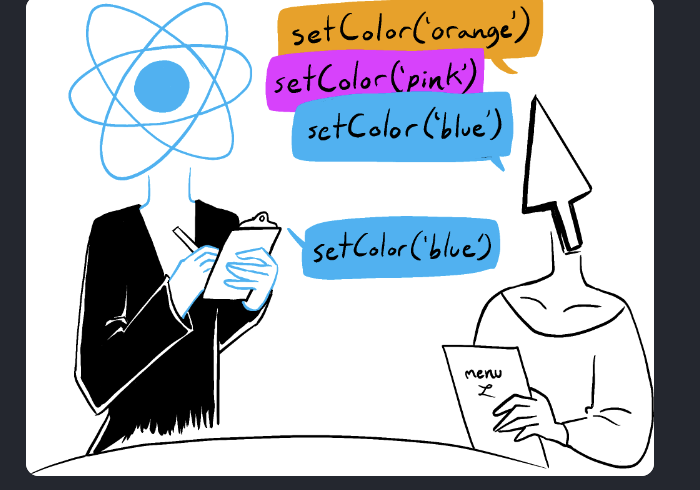 setColor('orange')
setColor('pink')
setColor('blue')
setColor('blue')
menu